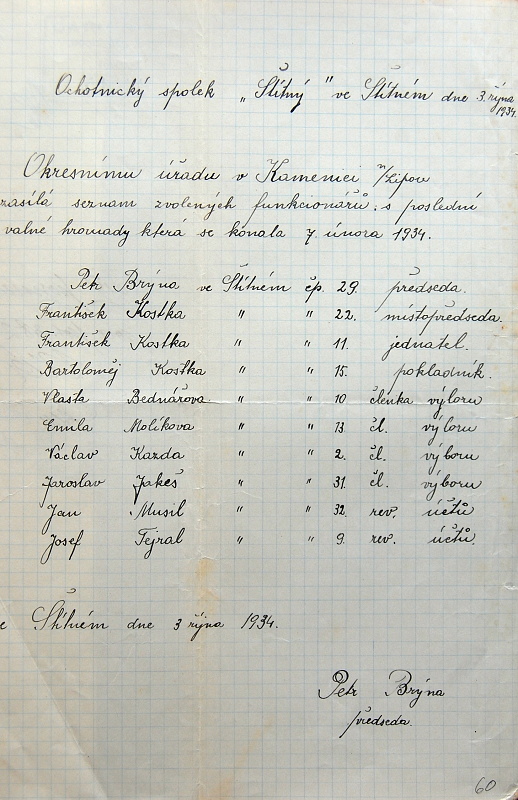 Ochotnický spolek „Štítný" ve Štítném dne 3. října 1934.
Okresnímu úřadu v Kamenici n/Lipou
zasílá seznam zvolených funkcionářů s poslední
valné hromady která se konala 7. února 1934.
Petr Brýna ve Štítném čp. 29. předseda.
František Kostka " " 22. místopředseda.
František Kostka " " 11. jednatel.
Bartoloměj Kostka " " 15. pokladník.
Vlasta Bednářova " " 10 členka výboru
Emila Molíkova " " 13. čl. výboru
Václav Kazda " " 2. čl. výboru
Jaroslav Jakeš " " 31. čl. výboru
Jan Musil " " 32. rev. účtů
Josef Fejral " " 9. rev. účtů.
e Štítném dne 3 října 1934.
Petr Brýna
předseda.
60